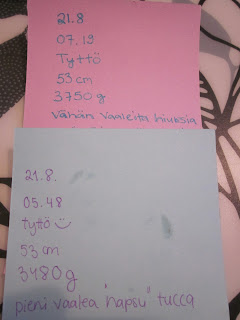 21.8
07.19
Tyttö
53 cm
3750 g
vähän vaaleita hiuksia
21.8.
05.48
tyttö
53 cm
3480g
pieni vaalea "hapsu" tucca